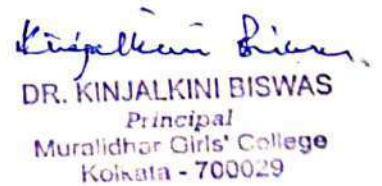 Kinjalkini Biswas.
DR. KINJALKINI BISWAS
Principal
Muralidhar Girls' College
Kolkata - 700029